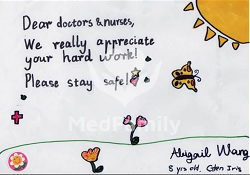 Dear doctors & nurses,
We really appreciate
your hard work!
Please stay safe!
MedFamily
Abigail Wang
8 yrs old, Eden Iris